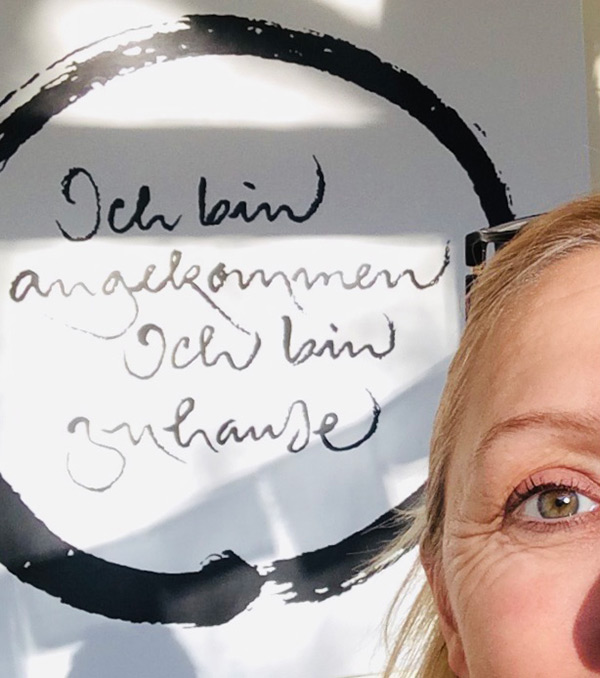 Ich bin
angekommen
Ich bin
zuhause